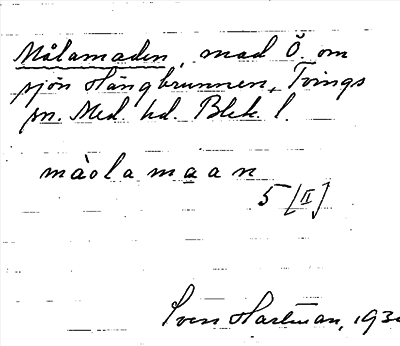 Målamaden, mad Ö. om
sjön Hängbrunnen, Tvings
sn. Med. hd. Blek. l.
màolamaan
5 [II]
Sven Hartman, 193